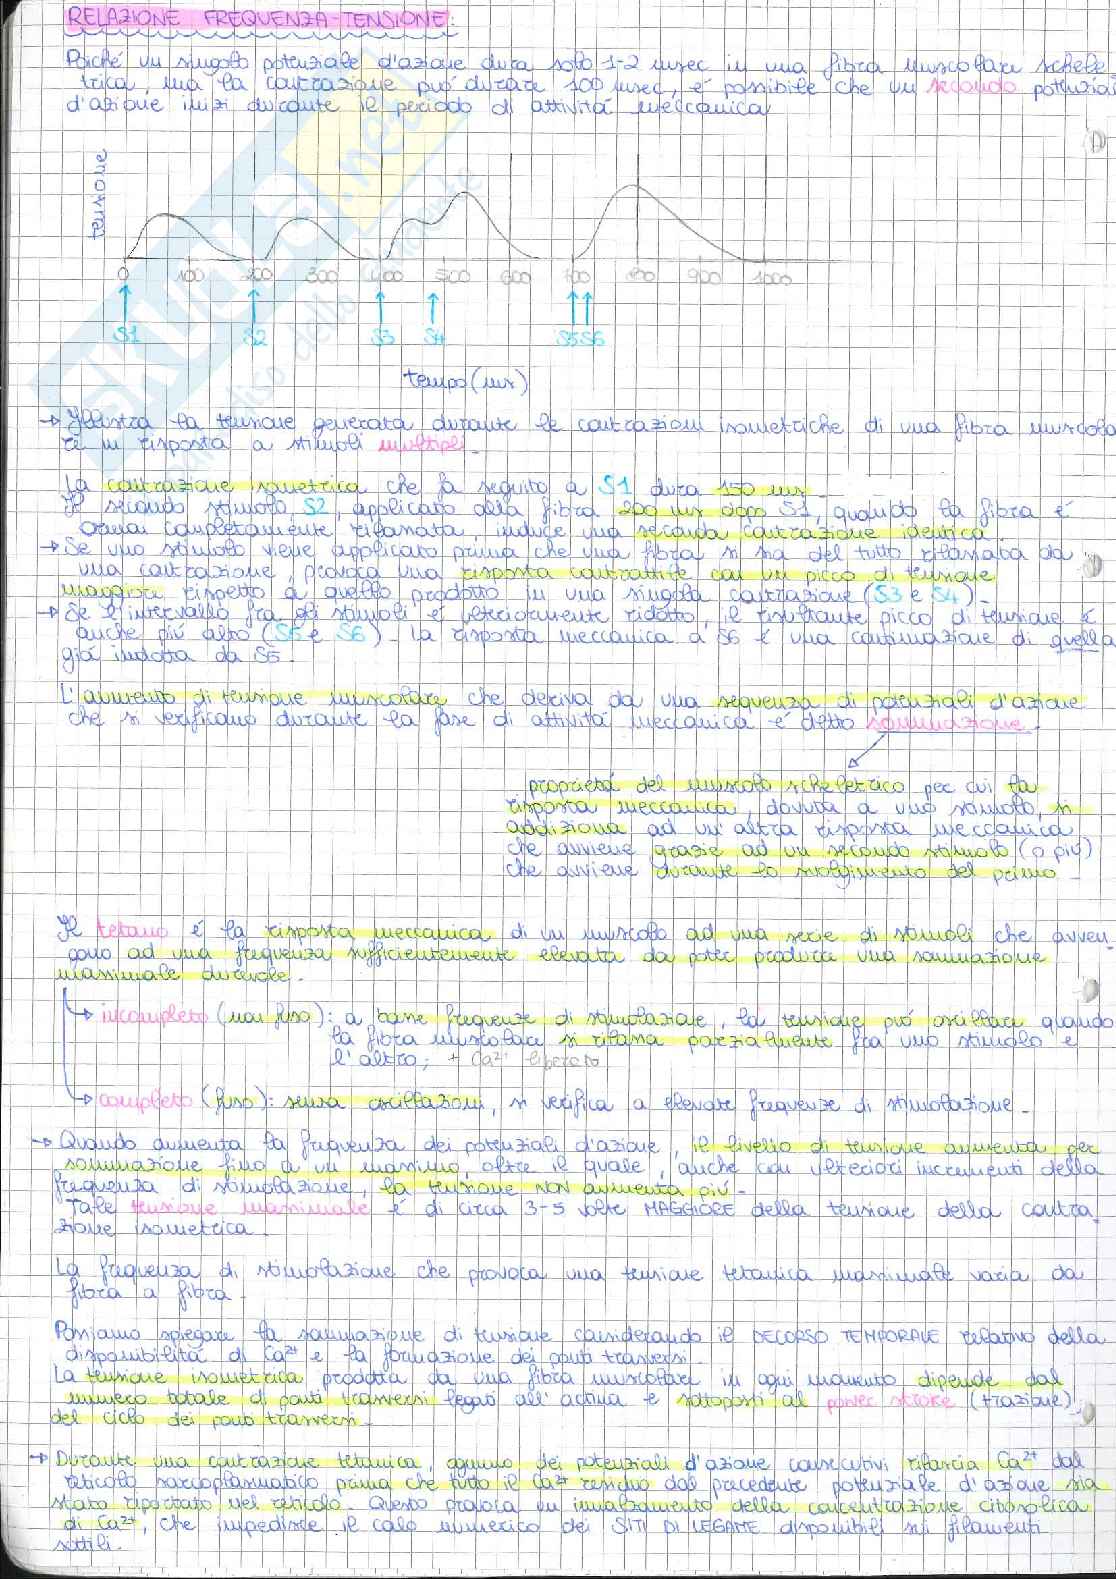 RELAZIONE FREQUENZA-TENSIONE:
Poiché un singolo potenziale d'azione dura solo 1-2 msec in una fibra muscolare schele
trica, ma la contrazione può durare 100 msec, é possibile che un secondo potenzia
d'azione inizi durante il periodo di attività meccanica
tensione
0 100 200 300 400 500 600 700 800 900 1000
S1 S2 S3 S4 S5 S6
tempo (ms)
→ Illustra la tensione generata durante le contrazioni isometriche di una fibra muscola
re in risposta a stimoli multipli.
La contrazione isometrica che fa seguito a S1 dura 150 ms.
Il secondo stimolo, S2, applicato alla fibra 200 ms dopo S1, quando la fibra é
ormai completamente rilassata, induce una seconda contrazione identica.
→ Se uno stimolo viene applicato prima che una fibra si sia del tutto rilassata da
una contrazione, provoca una risposta contrattile con un picco di tensione
maggiore rispetto a quello prodotto in una singola contrazione (S3 e S4).
→ Se l'intervallo fra gli stimoli é ulteriormente ridotto, il risultante picco di tensione é
anche più alto (S5 e S6). La risposta meccanica a S6 é una continuazione di quella
già indotta da S5.
L'aumento di tensione muscolare che deriva da una sequenza di potenziali d'azione
che si verificano durante la fase di attività meccanica é detto sommazione.
proprietà del muscolo scheletrico per cui la
risposta meccanica, dovuta a uno stimolo, si
addiziona ad un'altra risposta meccanica
che avviene grazie ad un secondo stimolo (o più)
che avviene durante lo svolgimento del primo.
Il tetano é la risposta meccanica di un muscolo ad una serie di stimoli che avven-
gono ad una frequenza sufficientemente elevata da poter produrre una sommazione
massimale durevole.
incompleto (non fuso): a basse frequenze di stimolazione, la tensione può oscillare quando
la fibra muscolare si rilassa parzialmente fra uno stimolo e
l'altro; + Ca²⁺ liberato
completo (fuso): senza oscillazioni, si verifica a elevate frequenze di stimolazione.
→ Quando aumenta la frequenza dei potenziali d'azione, il livello di tensione aumenta per
sommazione fino a un massimo, oltre il quale, anche con ulteriori incrementi della
frequenza di stimolazione, la tensione NON aumenta più.
Tale tensione massimale é di circa 3-5 volte MAGGIORE della tensione della contra
zione isometrica.
La frequenza di stimolazione che provoca una tensione tetanica massimale varia da
fibra a fibra.
Possiamo spiegare la sommazione di tensione considerando il DECORSO TEMPORALE relativo della
disponibilità di Ca²⁺ e la formazione dei ponti trasversi.
La tensione isometrica prodotta da una fibra muscolare in ogni momento dipende dal
numero totale di ponti trasversi legati all'actina e sottoposti al power stroke (trazione)
del ciclo dei ponti trasversi.
→ Durante una contrazione tetanica, ognuno dei potenziali d'azione consecutivi rilascia Ca²⁺ dal
reticolo sarcoplasmatico prima che tutto il Ca²⁺ residuo dal precedente potenziale d'azione sia
stato riportato nel reticolo. Questo provoca un innalzamento della concentrazione citosolica
di Ca²⁺, che impedisce il calo numerico dei SITI DI LEGAME disponibili sui filamenti
sottili.